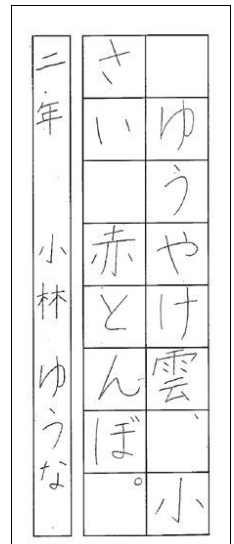 ゆうやけ雲、小
さい 赤とんぼ。
二年 小林 ゆうな